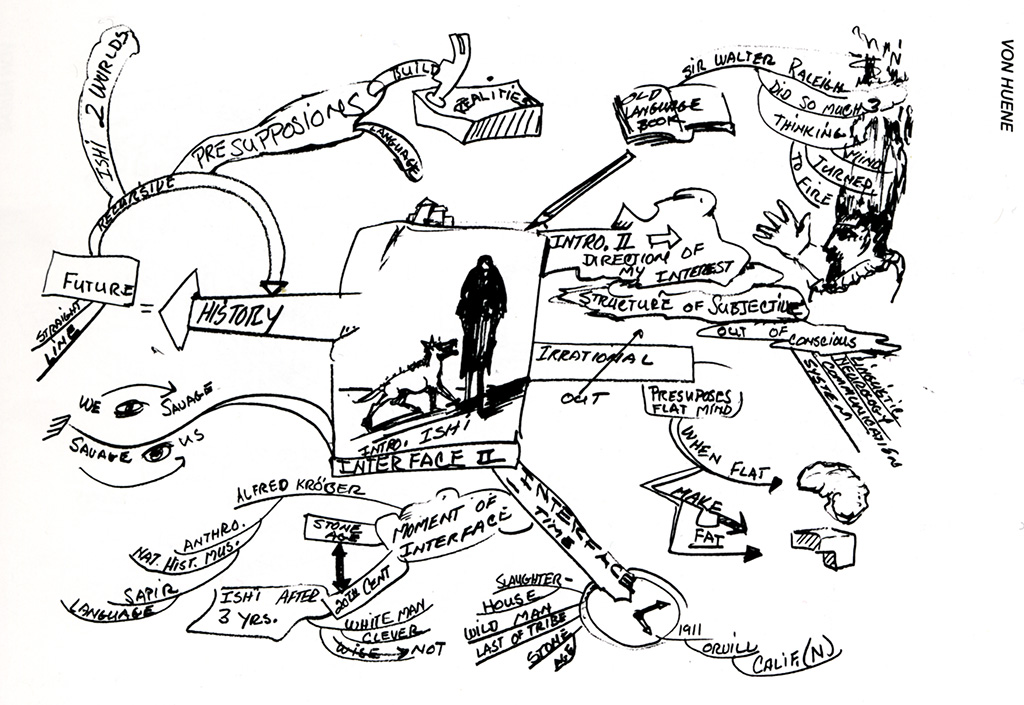 VON HUENE
ISHI 2 WORLDS
RECURSIVE
PRESUPPOSIONS
BUILD
REALITIES
LANGUAGE
FUTURE
=
HISTORY
STRAIGHT
LINE
OLD
LANGUAGE
BOOK
SIR WALTER RALEIGH
DID SO MUCH
THINKING
MIND
TURNED
TO FIRE
INTRO. II
DIRECTION OF
MY INTEREST
STRUCTURE OF SUBJECTIVE
OUT OF CONSCIOUS
LINGUISTIC
NEUROLOGY
COMMUNICATION
SYSTEM
IRRATIONAL
OUT
PRESUPOSES
FLAT MIND
WHEN FLAT
MAKE
FAT
WE SAVAGE
SAVAGE US
INTRO. ISHI
INTERFACE II
INTERFACE
TIME
ALFRED KRÖBER
ANTHRO.
NAT. HIST. MUS.
SAPIR
LANGUAGE
MOMENT OF
INTERFACE
STONE
AGE
20TH CENT
ISHI AFTER
3 YRS.
WHITE MAN
CLEVER
WISE → NOT
SLAUGHTER-
HOUSE
WILD MAN
LAST OF TRIBE
STONE
AGE
1911
ORVILL
CALIF. (N)